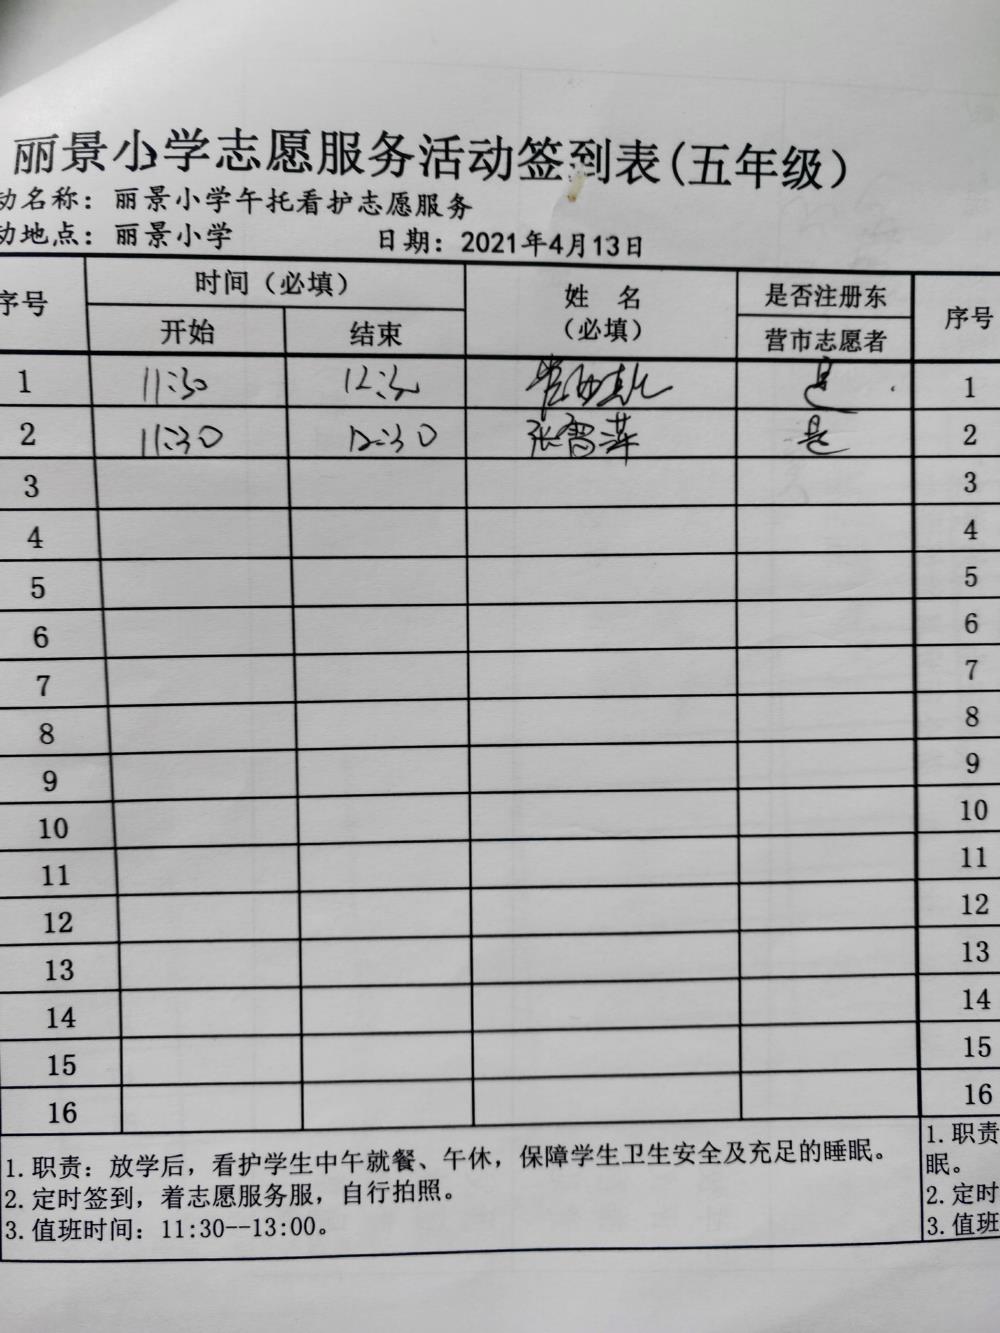 丽景小学志愿服务活动签到表(五年级)
动名称：丽景小学午托看护志愿服务
动地点：丽景小学 日期：2021年4月13日
序号 时间（必填） 姓 名（必填） 是否注册东营市志愿者 序号
开始 结束
1 11:30 12:30 是 1
2 11:30 12:30 张 萍 是 2
3 3
4 4
5 5
6 6
7 7
8 8
9 9
10 10
11 11
12 12
13 13
14 14
15 15
16 16
1.职责：放学后，看护学生中午就餐、午休，保障学生卫生安全及充足的睡眠。
2.定时签到，着志愿服务服，自行拍照。
3.值班时间：11:30--13:00。
1.职责
眠。
2.定时
3.值班